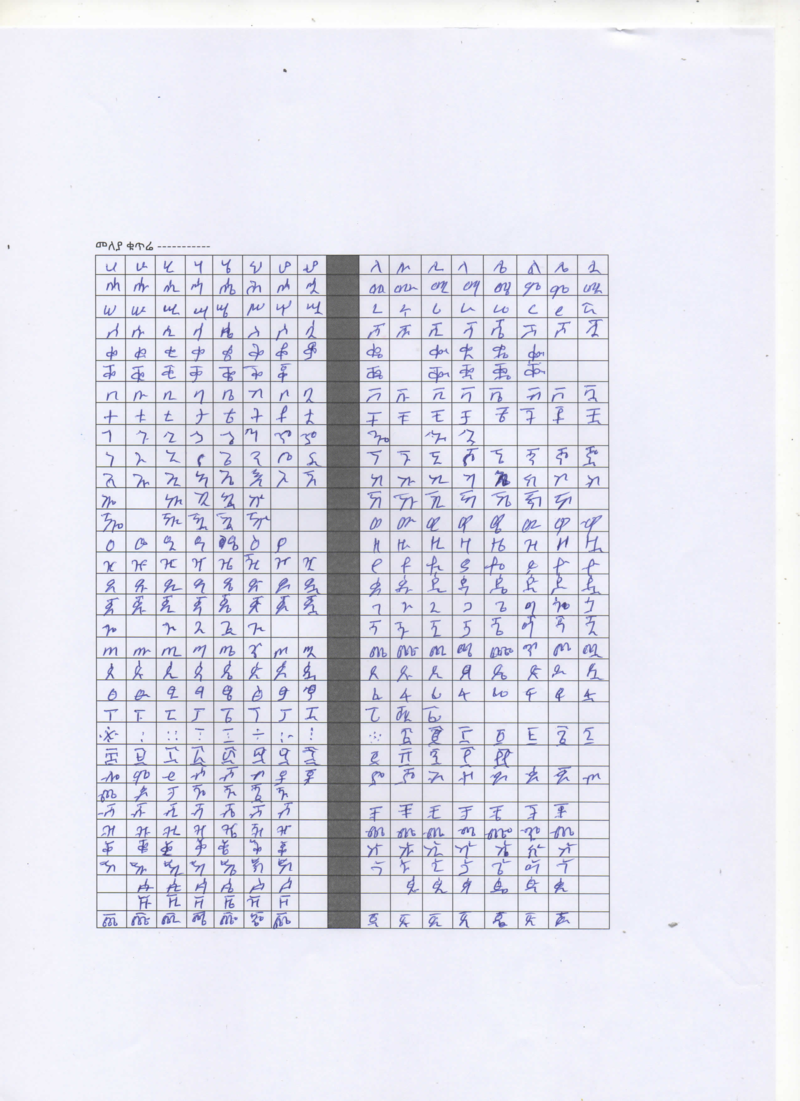 መለያ ቁጥር -----------
ሀ ሁ ሂ ሃ ሄ ህ ሆ ሇ ለ ሉ ሊ ላ ሌ ል ሎ ሏ
ሐ ሑ ሒ ሓ ሔ ሕ ሖ ሗ መ ሙ ሚ ማ ሜ ም ሞ ሟ
ሠ ሡ ሢ ሣ ሤ ሥ ሦ ሧ ረ ሩ ሪ ራ ሬ ር ሮ ሯ
ሰ ሱ ሲ ሳ ሴ ስ ሶ ሷ ሸ ሹ ሺ ሻ ሼ ሽ ሾ ሿ
ቀ ቁ ቂ ቃ ቄ ቅ ቆ ቇ ቈ ቊ ቋ ቌ ቍ
ቐ ቑ ቒ ቓ ቔ ቕ ቖ ቘ ቚ ቛ ቜ ቝ
በ ቡ ቢ ባ ቤ ብ ቦ ቧ ቨ ቩ ቪ ቫ ቬ ቭ ቮ ቯ
ተ ቱ ቲ ታ ቴ ት ቶ ቷ ቸ ቹ ቺ ቻ ቼ ች ቾ ቿ
ኀ ኁ ኂ ኃ ኄ ኅ ኆ ኇ ኈ ኊ ኋ
ነ ኑ ኒ ና ኔ ን ኖ ኗ ኘ ኙ ኚ ኛ ኜ ኝ ኞ ኟ
አ ኡ ኢ ኣ ኤ እ ኦ ኧ ከ ኩ ኪ ካ ኬ ክ ኮ ኯ
ኰ ኲ ኳ ኴ ኵ ኸ ኹ ኺ ኻ ኼ ኽ ኾ
ዀ ዂ ዃ ዄ ዅ ወ ዉ ዊ ዋ ዌ ው ዎ ዏ
ዐ ዑ ዒ ዓ ዔ ዕ ዖ ዘ ዙ ዚ ዛ ዜ ዝ ዞ ዟ
ዠ ዡ ዢ ዣ ዤ ዥ ዦ ዧ የ ዩ ዪ ያ ዬ ይ ዮ ዯ
ደ ዱ ዲ ዳ ዴ ድ ዶ ዷ ዸ ዹ ዺ ዻ ዼ ዽ ዾ ዿ
ጀ ጁ ጂ ጃ ጄ ጅ ጆ ጇ ገ ጉ ጊ ጋ ጌ ግ ጎ ጏ
ጐ ጒ ጓ ጔ ጕ ጘ ጙ ጚ ጛ ጜ ጝ ጞ ጟ
ጠ ጡ ጢ ጣ ጤ ጥ ጦ ጧ ጨ ጩ ጪ ጫ ጬ ጭ ጮ ጯ
ጰ ጱ ጲ ጳ ጴ ጵ ጶ ጷ ጸ ጹ ጺ ጻ ጼ ጽ ጾ ጿ
ፀ ፁ ፂ ፃ ፄ ፅ ፆ ፇ ፈ ፉ ፊ ፋ ፌ ፍ ፎ ፏ
ፐ ፑ ፒ ፓ ፔ ፕ ፖ ፗ ፘ ፙ ፚ
፠ ፡ ። ፣ ፤ ፥ ፦ ፧ ፨ ፩ ፪ ፫ ፬ ፭ ፮ ፯
፰ ፱ ፲ ፳ ፴ ፵ ፶ ፷ ፸ ፹ ፺ ፻ ፼
ⶀ ⶁ ⶂ ⶃ ⶄ ⶅ ⶆ ⶇ ⶈ ⶉ ⶊ ⶋ ⶌ ⶍ ⶎ ⶏ
ⶐ ⶑ ⶒ ⶓ ⶔ ⶕ ⶖ
ⶠ ⶡ ⶢ ⶣ ⶤ ⶥ ⶦ ⶨ ⶩ ⶪ ⶫ ⶬ ⶭ ⶮ
ⶰ ⶱ ⶲ ⶳ ⶴ ⶵ ⶶ ⶸ ⶹ ⶺ ⶻ ⶼ ⶽ ⶾ
ⷀ ⷁ ⷂ ⷃ ⷄ ⷅ ⷆ ⷈ ⷉ ⷊ ⷋ ⷌ ⷍ ⷎ
ⷐ ⷑ ⷒ ⷓ ⷔ ⷕ ⷖ ⷘ ⷙ ⷚ ⷛ ⷜ ⷝ ⷞ
ꬁ ꬂ ꬃ ꬄ ꬅ ꬆ ꬉ ꬊ ꬋ ꬌ ꬍ ꬎ
ꬑ ꬒ ꬓ ꬔ ꬕ ꬖ
ꬠ ꬡ ꬢ ꬣ ꬤ ꬥ ꬦ ꬨ ꬩ ꬪ ꬫ ꬬ ꬭ ꬮ